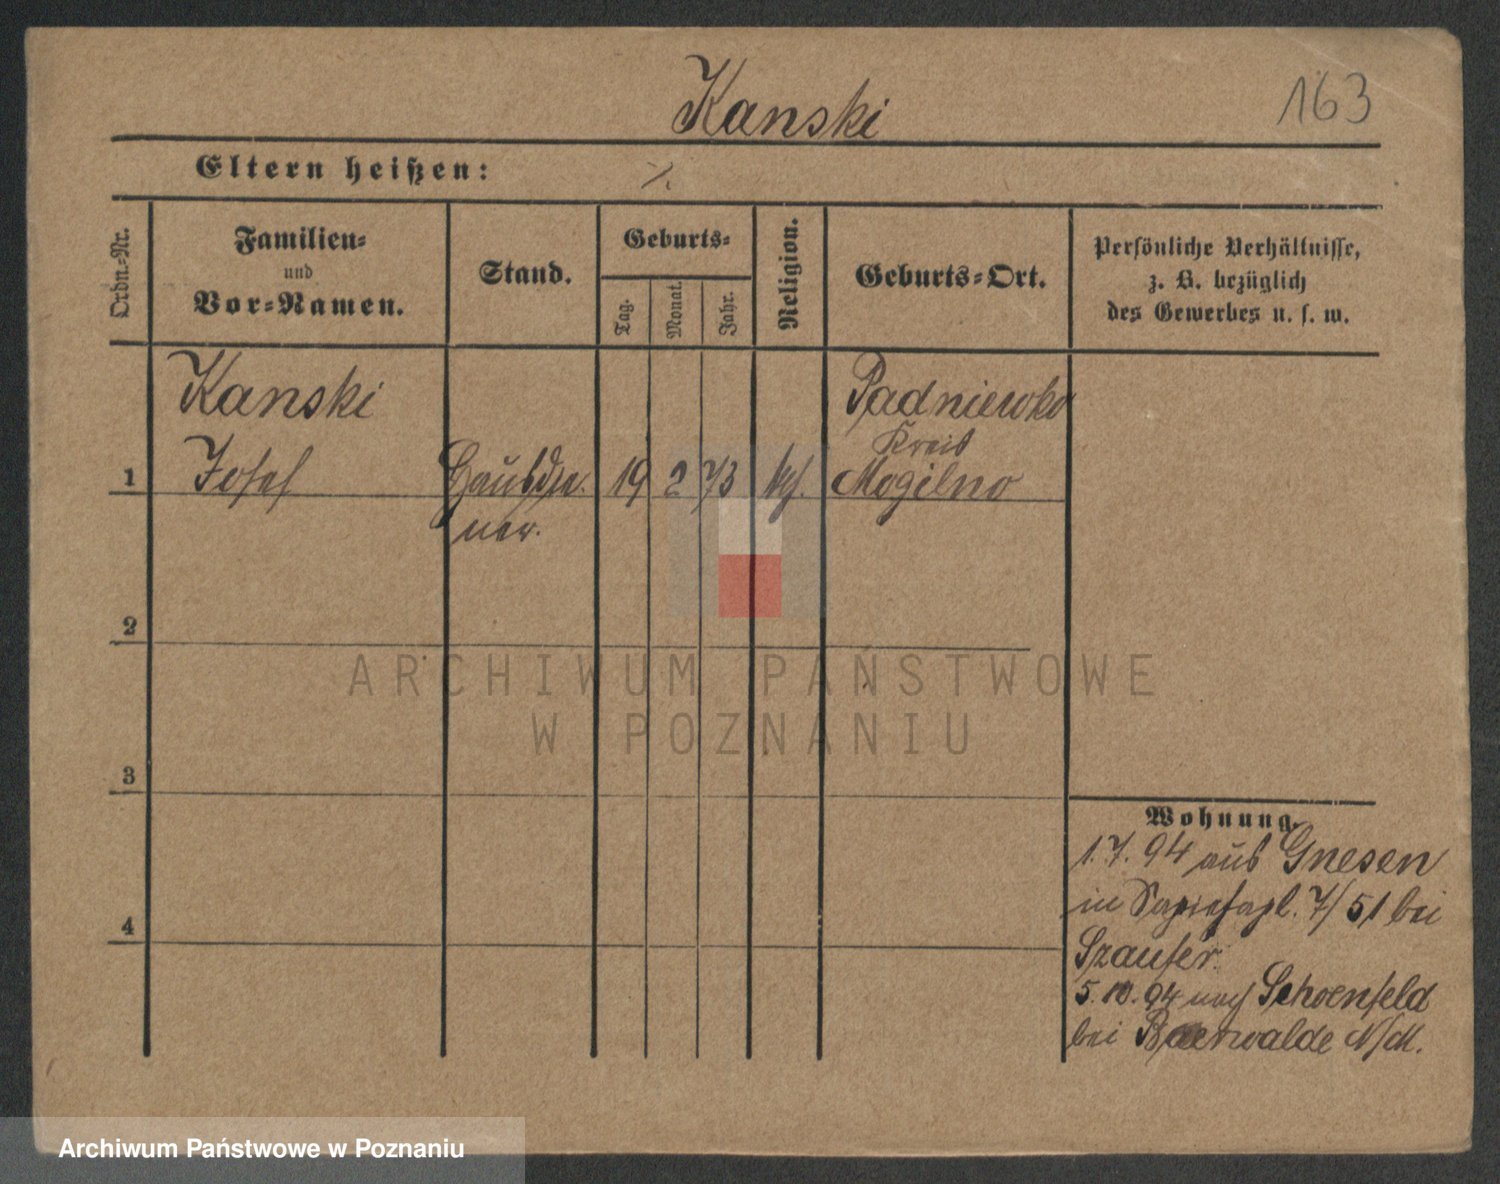 Kanski
163
Eltern heißen: ·/.
Ordn.-Nr.
Familien-
und
Vor-Namen.
Stand.
Geburts-
Tag.
Monat.
Jahr.
Religion.
Geburts-Ort.
Persönliche Verhältnisse,
z. B. bezüglich
des Gewerbes u. s. w.
Kanski
Padniewko
Kreis
1 Josef Hausdie- 19 2 73 kf. Mogilno
ner.
2
3
4
Wohnung.
1.7.94 aus Gnesen
in Sapiehapl. 7/51 bei
5.10.94 nach Schoenfeld
bei Baerwalde N/M.
ARCHIWUM PAŃSTWOWE
W POZNANIU
Archiwum Państwowe w Poznaniu